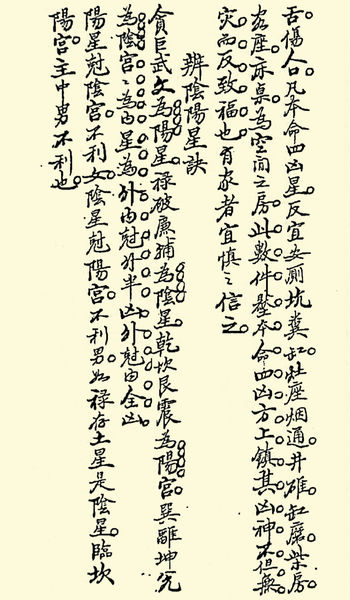 舌傷人口凡本命四凶星反宜安厠坑糞缸灶座烟通井碓缸磨柴房
客座亦桌為空间之房此數件壓本命四凶方上鎮其凶神不但無
灾而反致福也有家者宜慎〻信之
辨陰陽星訣
貪巨武文為陽星祿破廉輔為陰星乾坎艮震為陽宮巽離坤兌
為陰宮〻為內星為外內尅外半凶外尅內全凶
陽星尅陰宮不利女陰星尅陽宮不利男如祿存土星是陰星臨坎
陽宮主中男不利也